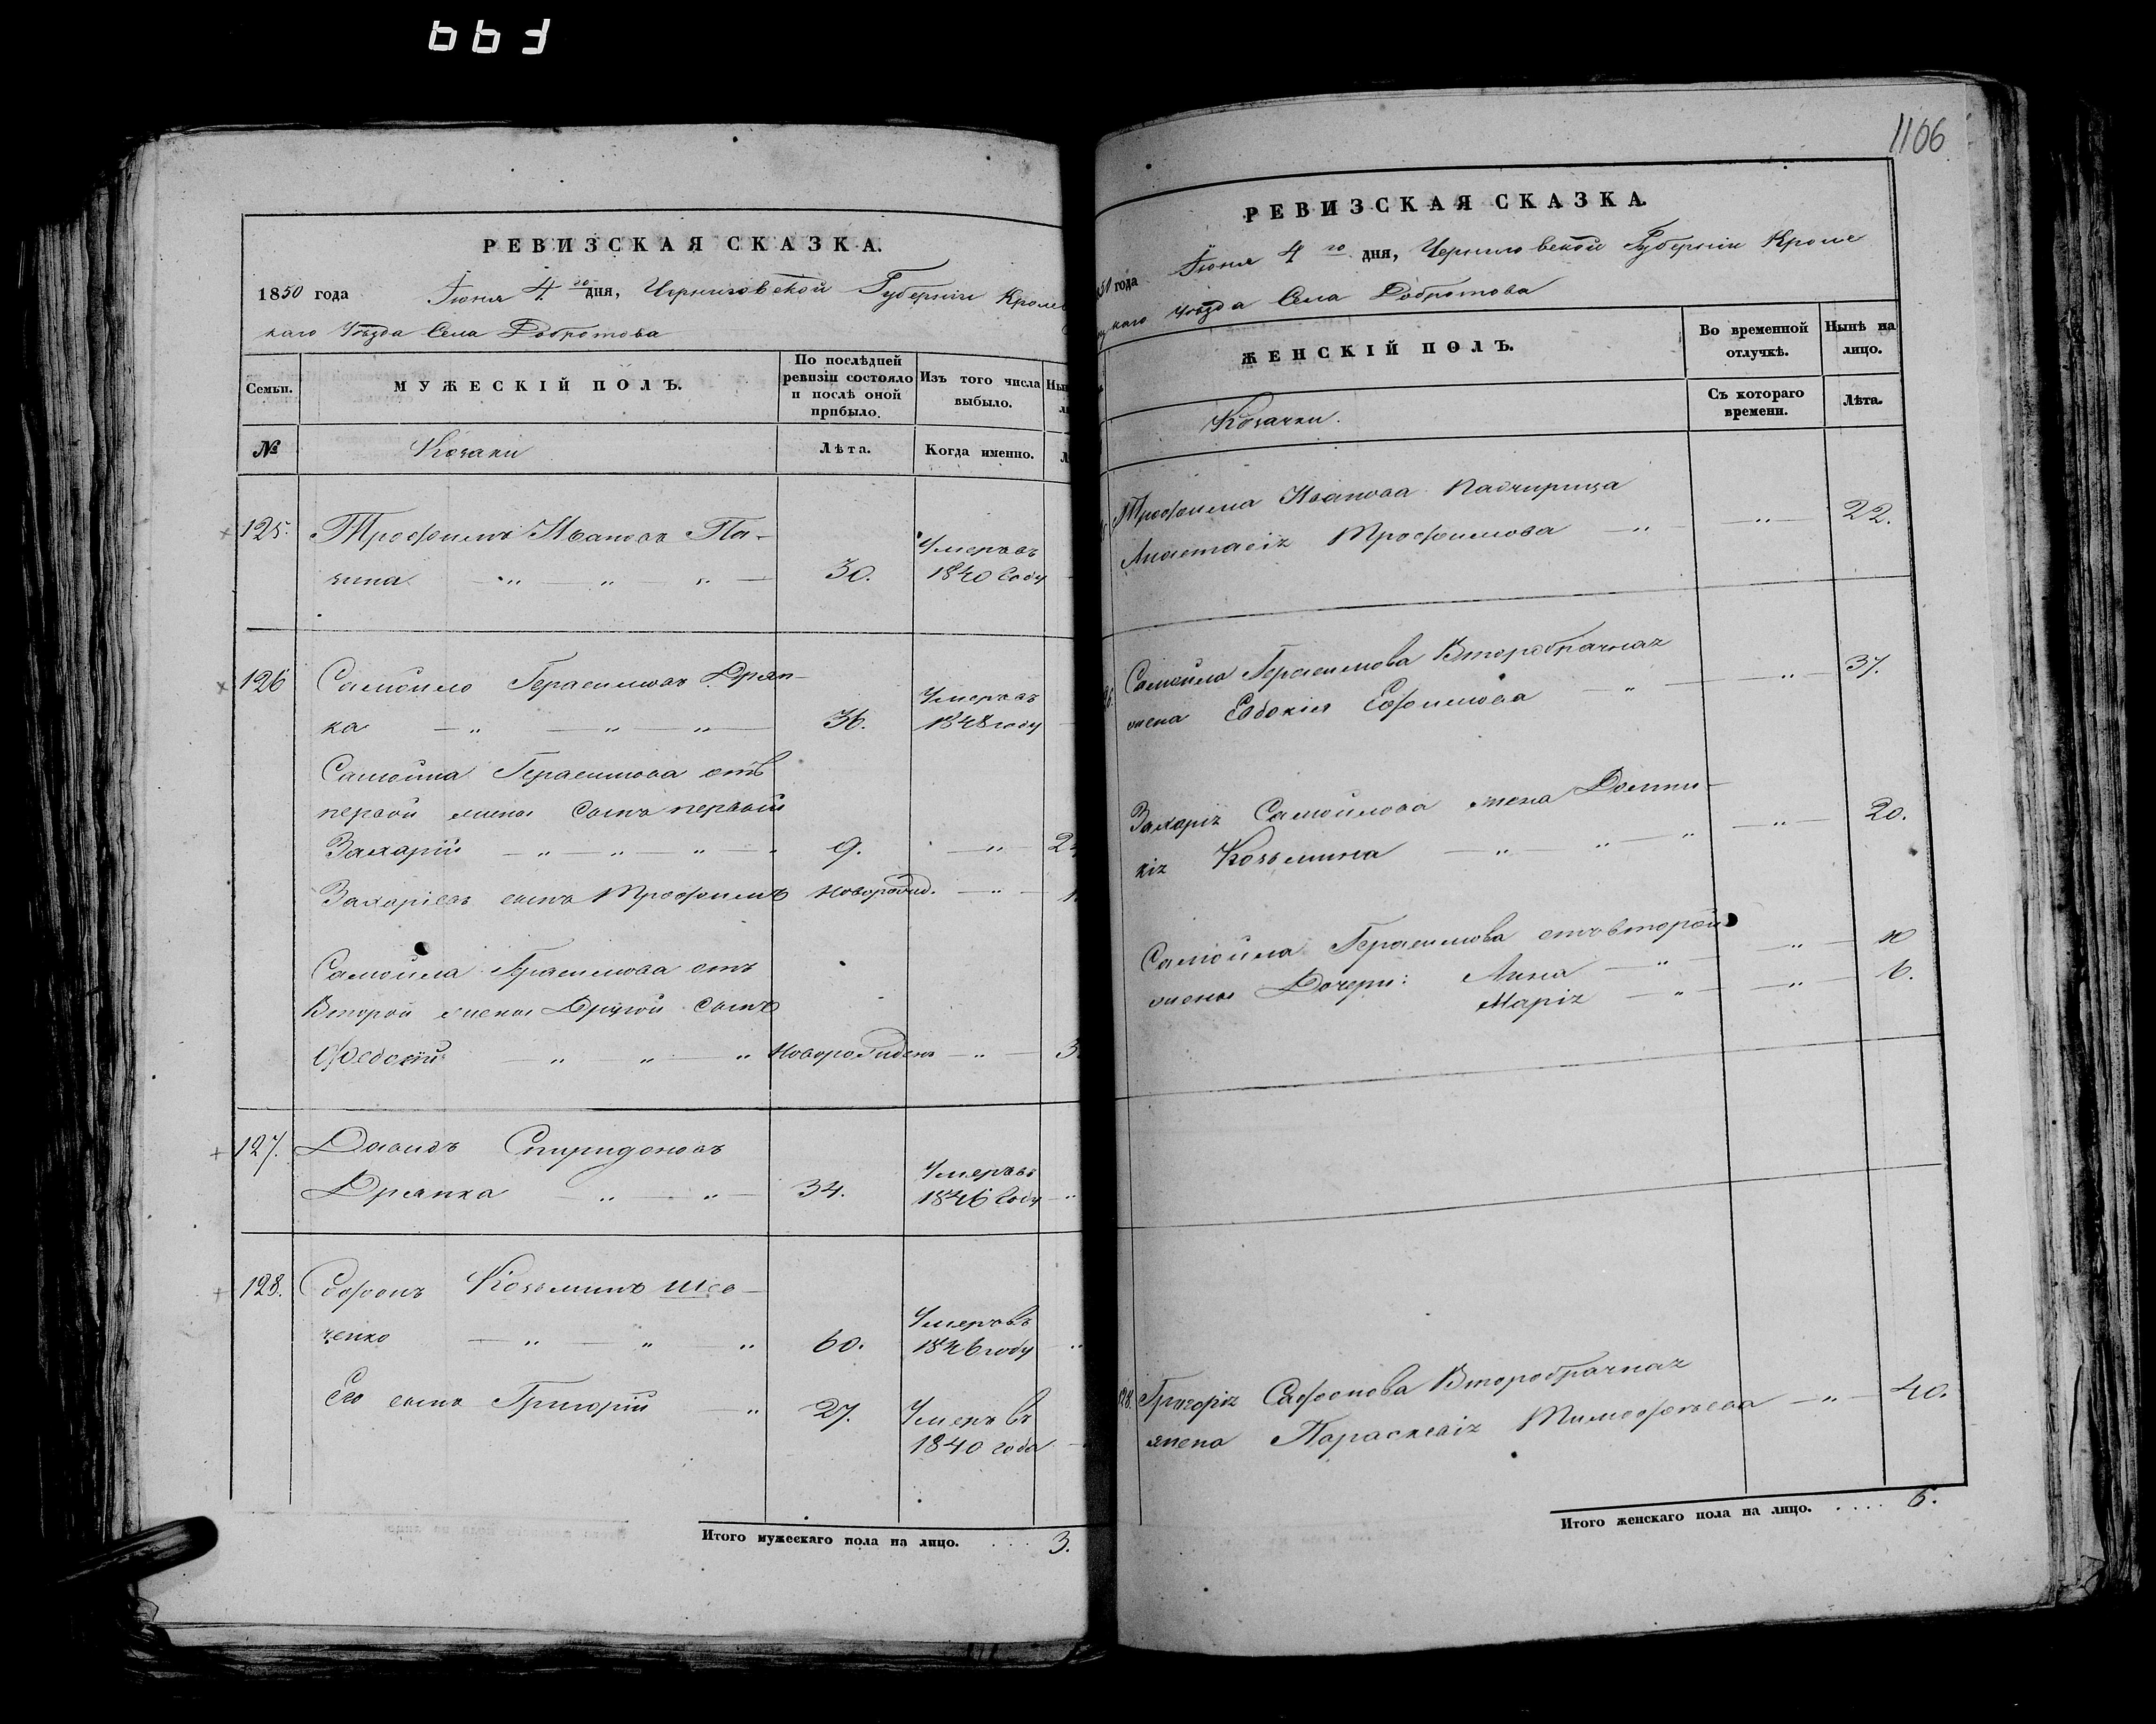 1106
РЕВИЗСКАЯ СКАЗКА.
1850 года Іюня 4 го дня, Черниговской Губерніи Кролев
каго Уѣзда Села Добротова
Семьи.
МУЖЕСКІЙ ПОЛЪ.
По послѣдней ревизіи состояло и послѣ оной прибыло.
Изъ того числа выбыло.
№
Козаки
Лѣта.
Когда именно.
125. Трофимъ Ивановъ Па-
30.
Умеръ въ
1840 году
126 Самойло Герасимовъ Дряп-
ка 36.
Умеръ въ
1848 году
Самойла Герасимова отъ
первой жены сынъ первый
Захарій 9.
Захаріевъ сынъ Трофимъ новорожд.
Самойла Герасимова отъ
Второй жены Другой сынъ
Федосій Новорожденъ 3
127. Давидъ Спиридоновъ
Дряпка 34.
Умеръ въ
1846 году
128. Софонъ Козьминъ Шев-
ченко 60.
Умеръ въ
1846 году
Его сынъ Григорій 27.
Умеръ въ
1840 года
Итого мужескаго пола на лицо. .... 3.
РЕВИЗСКАЯ СКАЗКА.
50 года Іюня 4 го дня, Черниговской Губерніи Кролев
каго Уѣзда Села Добротова
ЖЕНСКІЙ ПОЛЪ.
Во временной отлучкѣ.
Нынѣ на лицо.
Козачки.
Съ котораго времени.
Лѣта.
Трофима Иванова Падчирица
Анастасія Трофимова 22.
Самойла Герасимова Второбрачная
жена Евдокія Ефимова 37.
Захарія Самойлова жена Домни-
кія Козьмина 20.
Самойла Герасимова отъ второй
жены Дочери: Анна 10
Марія 6.
128. Григорія Сафонова Второбрачная
жена Параскевія Тимофѣева 40.
Итого женскаго пола на лицо. .... 6.